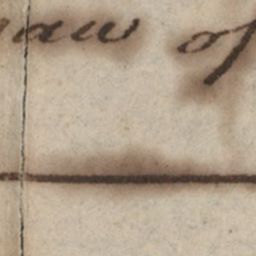 law of